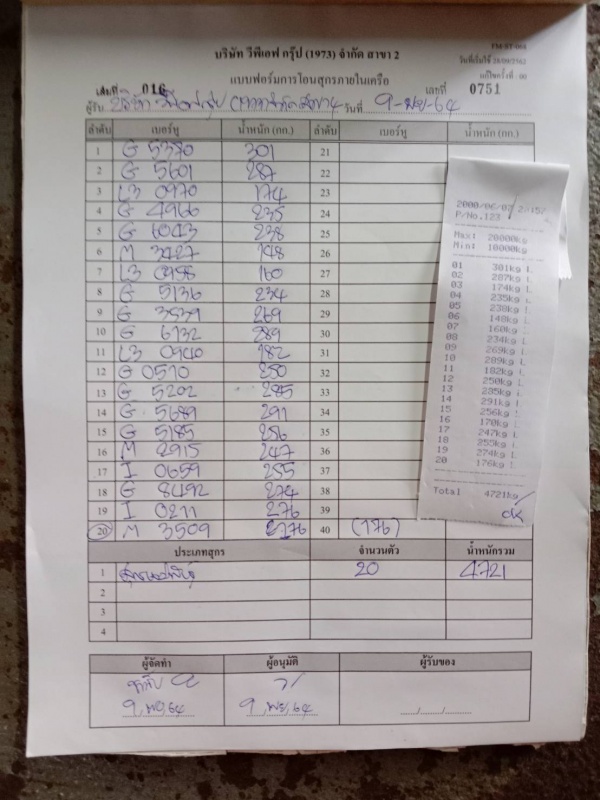 FM-BT-004
บริษัท วีพีเอฟ กรุ๊ป (1973) จำกัด สาขา 2
วันที่เริ่มใช้ 28/09/2562
แบบฟอร์มการโอนสุกรภายในเครือ
แก้ไขครั้งที่ 00
เล่มที่ 016 เลขที่ 0751
ผู้รับ บริษัท วีพีเอฟ กรุ๊ป วันที่ 9-พย-64
ลำดับ เบอร์หู น้ำหนัก (กก.) ลำดับ เบอร์หู น้ำหนัก (กก.)
1 G 5370 301 21
2 G 5601 287 22
3 L3 0970 174 23
4 G 4966 235 24
5 G 1043 238 25
6 M 3427 148 26
7 L3 0998 160 27
8 G 5136 234 28
9 G 3539 269 29
10 G 6132 289 30
11 L3 0940 182 31
12 G 0510 250 32
13 G 5202 285 33
14 G 5689 291 34
15 G 5185 256 35
16 M 2915 247 36
17 I 0659 255 37
18 G 8492 274 38
19 I 0211 276 39
20 M 3509 2176 40 (176)
2000/06/02
P/No.123
Max: 20000kg
Min: 10000kg
01 301kg L
02 287kg L
03 174kg L
04 235kg L
05 238kg L
06 148kg L
07 160kg L
08 234kg L
09 269kg L
10 289kg L
11 182kg L
12 250kg L
13 285kg L
14 291kg L
15 256kg L
16 170kg L
17 247kg L
18 255kg L
19 274kg L
20 176kg L
Total 4721kg
ok
ประเภทสุกร จำนวนตัว น้ำหนักรวม
1 20 4721
2
3
4
ผู้จัดทำ ผู้อนุมัติ ผู้รับของ
9 พย 64 9 พย 64 ....../....../......